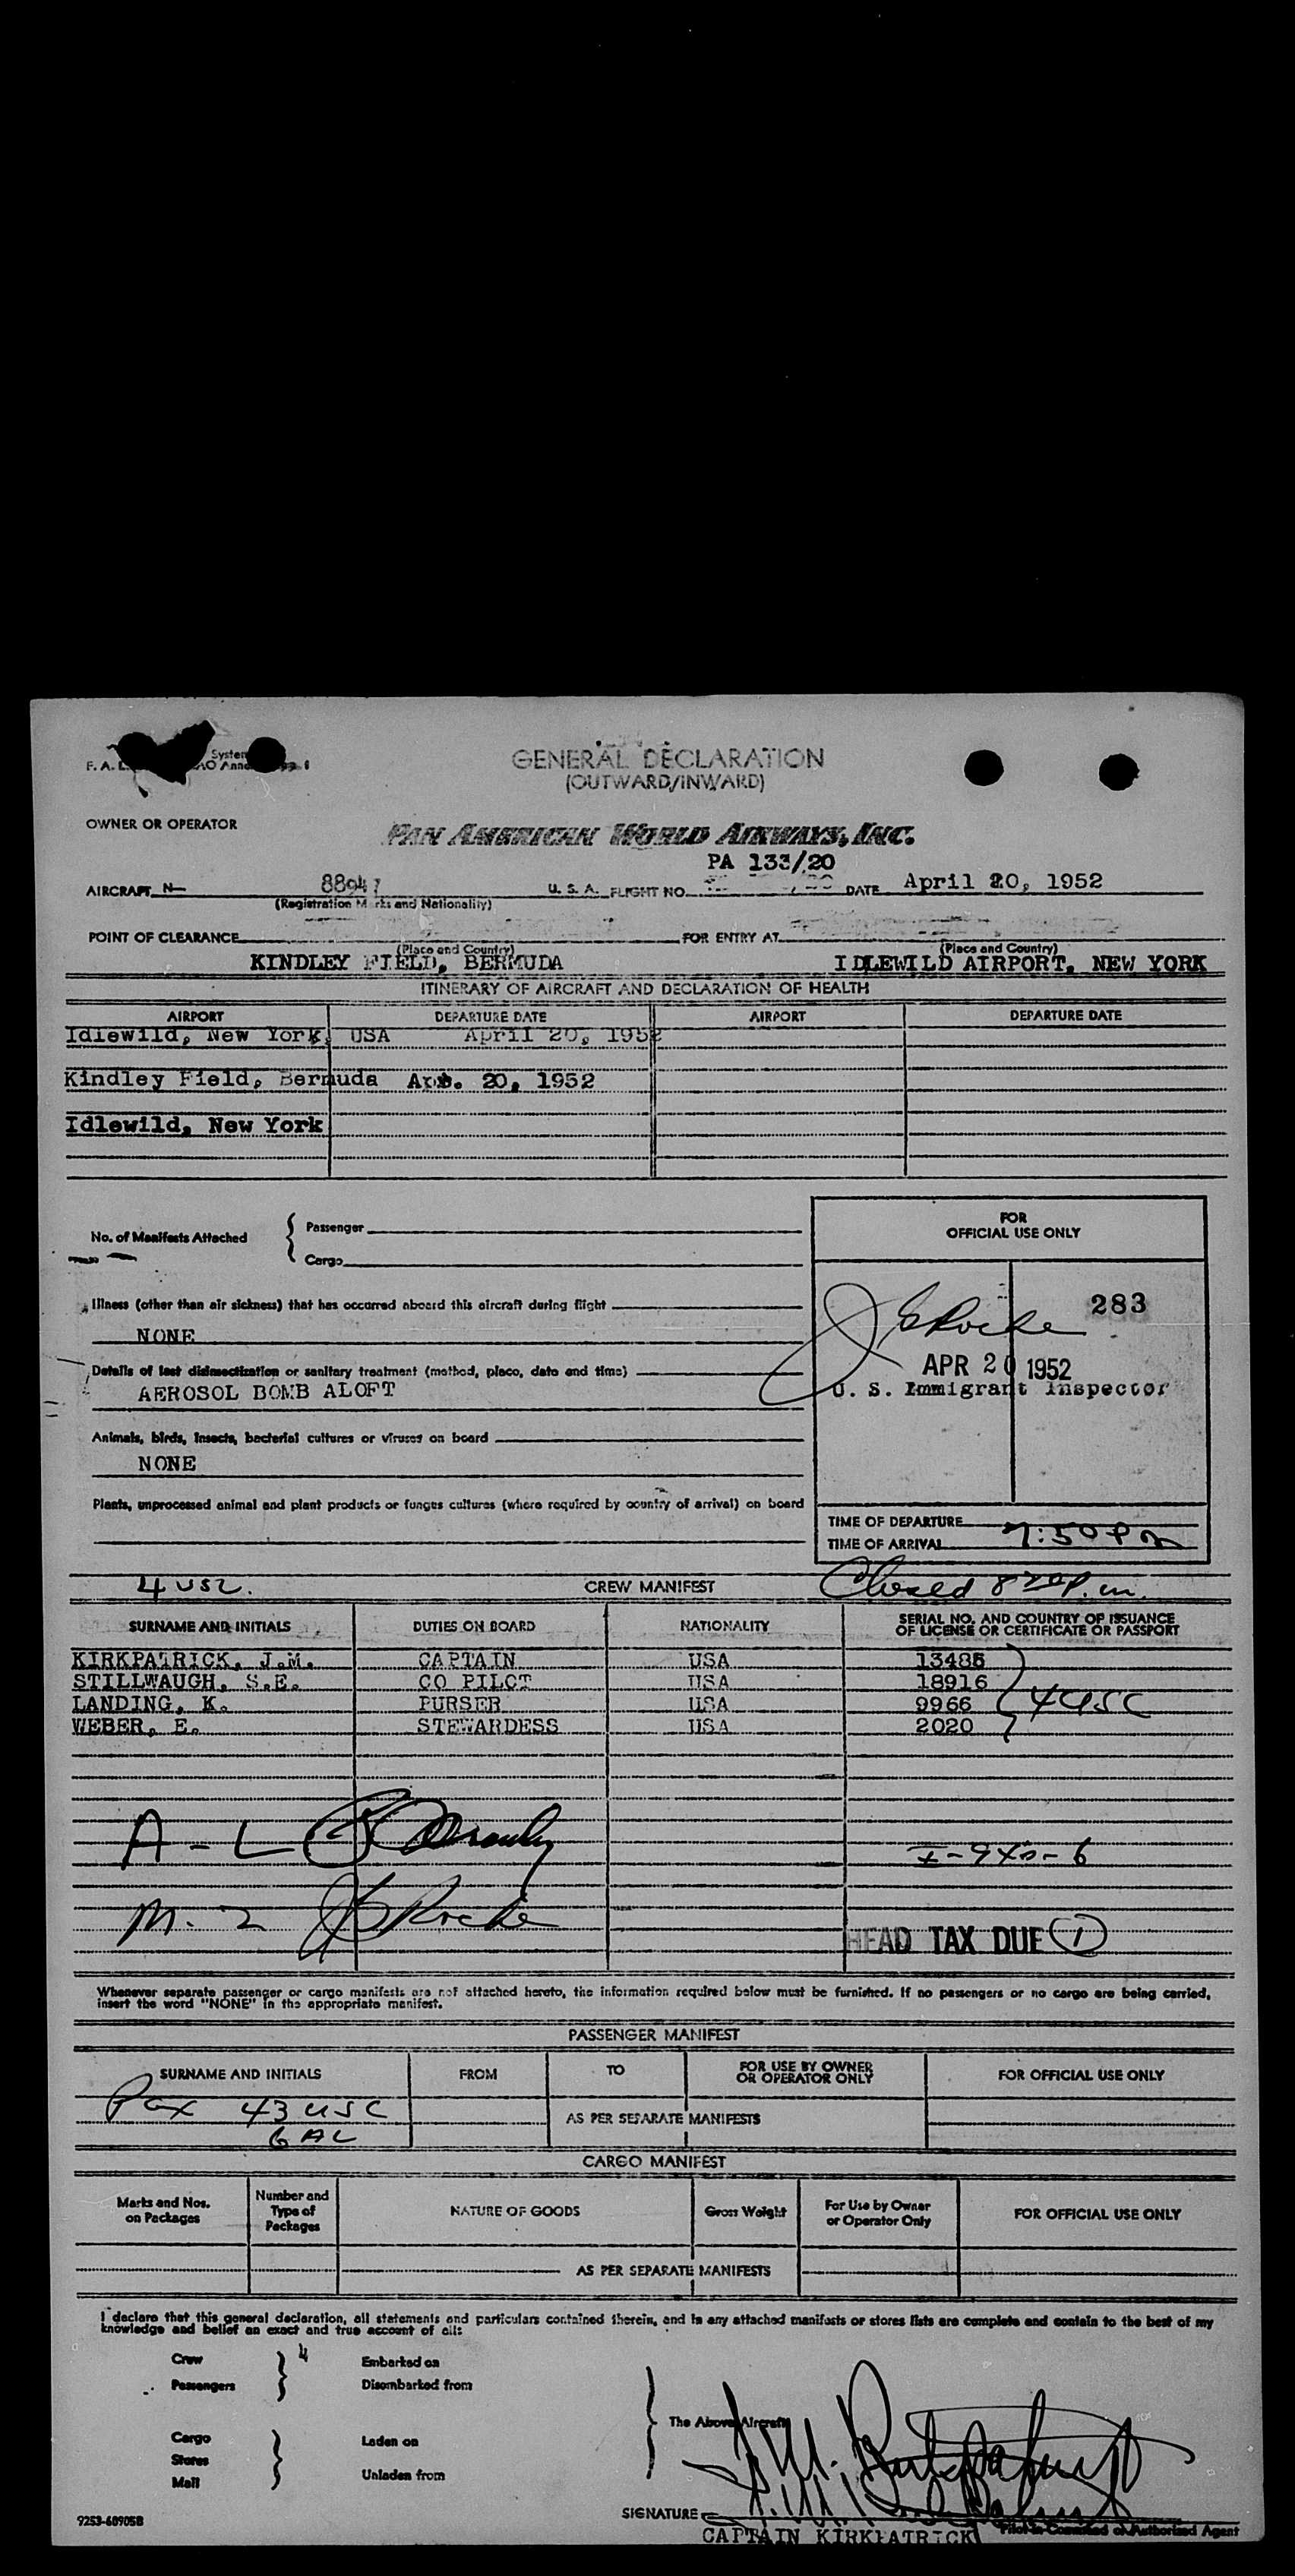 System
F. A. L.
GENERAL DECLARATION
(OUTWARD/INWARD)
OWNER OR OPERATOR
PAN AMERICAN WORLD AIRWAYS, INC.
PA 133/20
AIRCRAFT N— 88947 U. S. A. FLIGHT NO. DATE April 20, 1952
(Registration Marks and Nationality)
POINT OF CLEARANCE FOR ENTRY AT
(Place and Country) (Place and Country)
KINDLEY FIELD, BERMUDA IDLEWILD AIRPORT, NEW YORK
ITINERARY OF AIRCRAFT AND DECLARATION OF HEALTH
AIRPORT DEPARTURE DATE AIRPORT DEPARTURE DATE
Idlewild, New York, USA April 20, 1952
Kindley Field, Bermuda Apr. 20, 1952
Idlewild, New York
No. of Manifests Attached { Passenger
Cargo
Illness (other than air sickness) that has occurred aboard this aircraft during flight
NONE
Details of last disinsectization or sanitary treatment (method, place, date and time)
AEROSOL BOMB ALOFT
Animals, birds, insects, bacterial cultures or viruses on board
NONE
Plants, unprocessed animal and plant products or fungus cultures (where required by country of arrival) on board
FOR
OFFICIAL USE ONLY
283
J E Roche
APR 20 1952
U. S. Immigrant Inspector
TIME OF DEPARTURE
TIME OF ARRIVAL 7:50 PM
4 USC. CREW MANIFEST Closed 8 20 p.m.
SURNAME AND INITIALS DUTIES ON BOARD NATIONALITY SERIAL NO. AND COUNTRY OF ISSUANCE
OF LICENSE OR CERTIFICATE OR PASSPORT
KIRKPATRICK, J.M. CAPTAIN USA 13485
STILLWAUGH, S.E. CO PILOT USA 18916
LANDING, K. PURSER USA 9966
WEBER, E. STEWARDESS USA 2020
4 USC
A - L
I-940-6
M. Z J E Roche
HEAD TAX DUE 1
Whenever separate passenger or cargo manifests are not attached hereto, the information required below must be furnished. If no passengers or no cargo are being carried,
insert the word "NONE" in the appropriate manifest.
PASSENGER MANIFEST
SURNAME AND INITIALS FROM TO FOR USE BY OWNER OR OPERATOR ONLY FOR OFFICIAL USE ONLY
Pax 43 USC
AS PER SEPARATE MANIFESTS
6 AL
CARGO MANIFEST
Marks and Nos. on Packages Number and Type of Packages NATURE OF GOODS Gross Weight For Use by Owner or Operator Only FOR OFFICIAL USE ONLY
AS PER SEPARATE MANIFESTS
I declare that this general declaration, all statements and particulars contained therein, and in any attached manifests or stores lists are complete and contain to the best of my
knowledge and belief an exact and true account of all:
Crew } 4 Embarked on
Passengers Disembarked from
The Above Aircraft
Cargo Laden on
Stores
Mail Unladen from
J. M. Kirkpatrick
SIGNATURE
9253-68905B
CAPTAIN KIRKPATRICK Pilot-in-Command or Authorized Agent